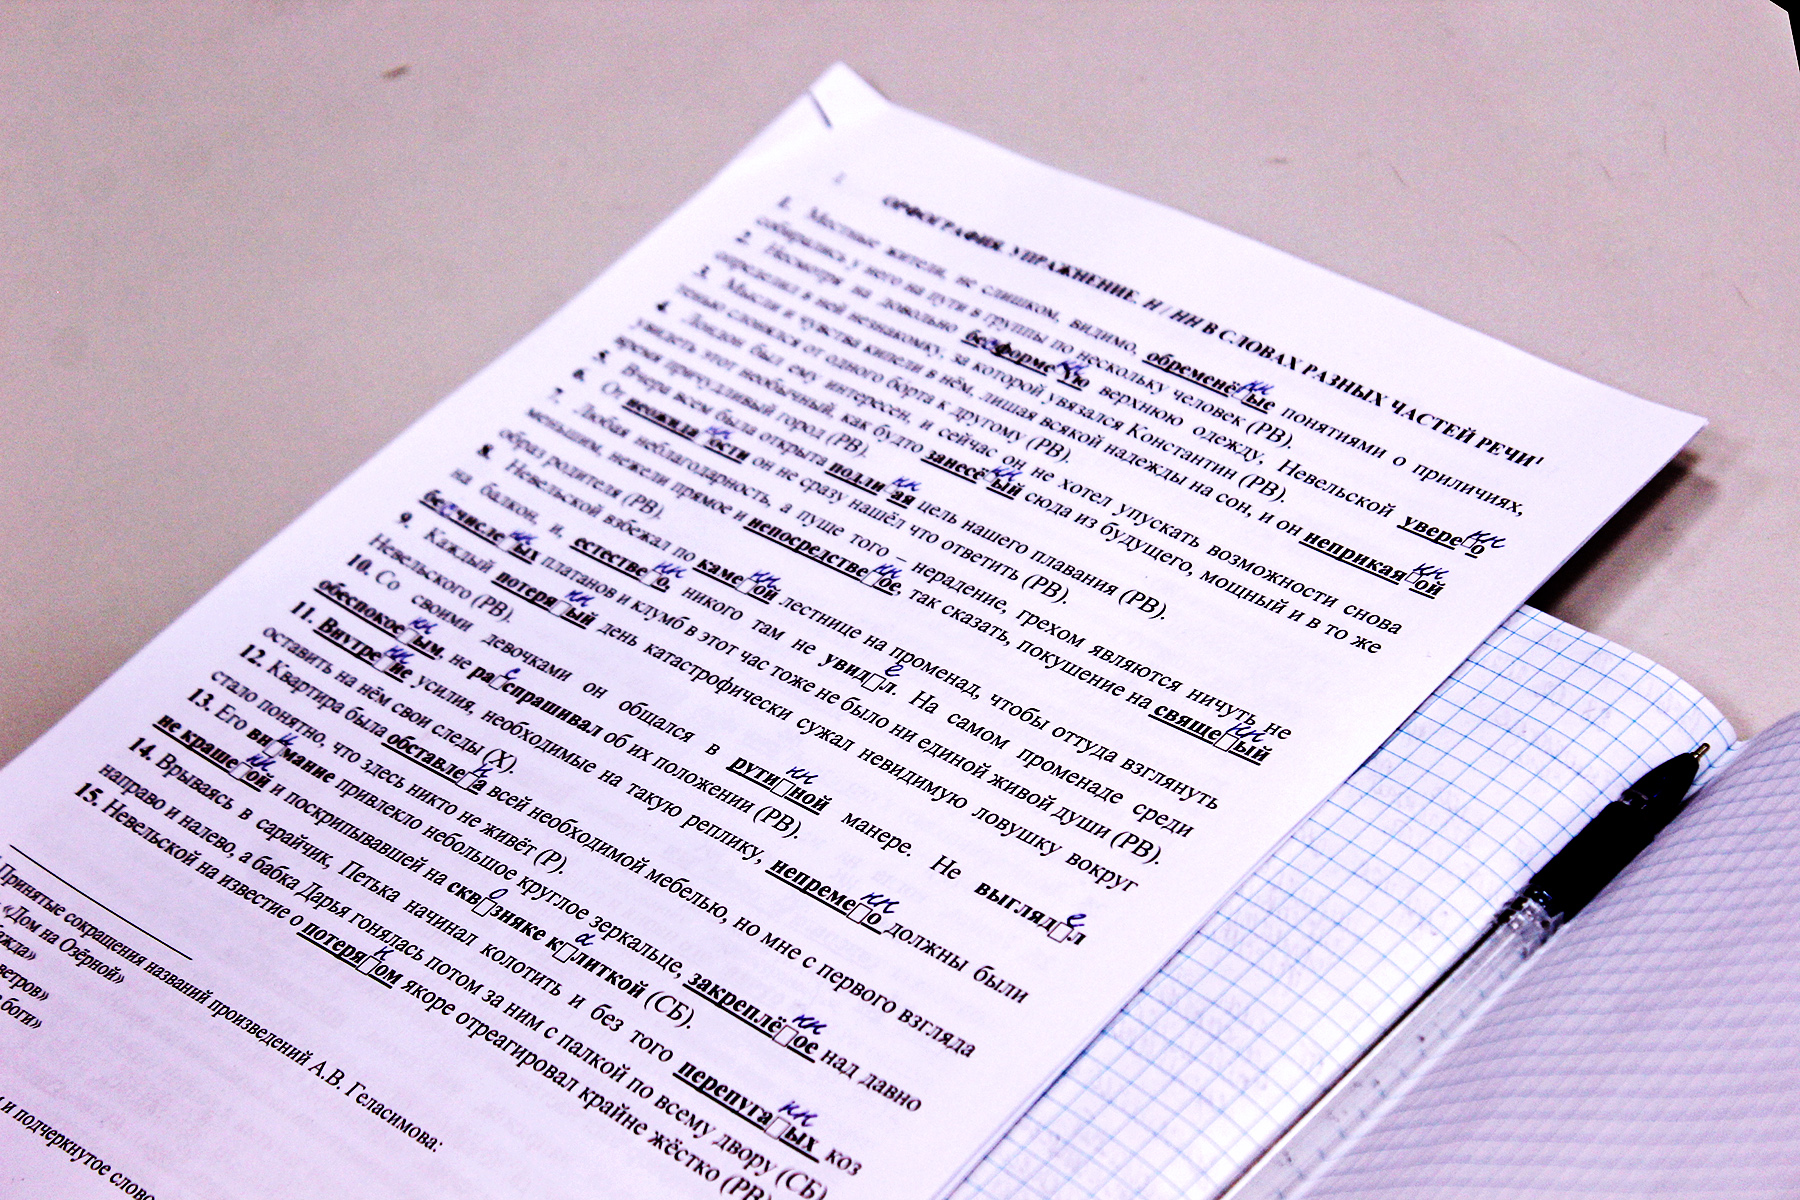 ОРФОГРАФИЯ. УПРАЖНЕНИЕ. Н / НН В СЛОВАХ РАЗНЫХ ЧАСТЕЙ РЕЧИ¹
1. Местные жители, не слишком, видимо, обременённые понятиями о приличиях,
собирались у него на пути в группы по нескольку человек (РВ).
2. Несмотря на довольно бесформенную верхнюю одежду, Невельской уверенно
определил в ней незнакомку, за которой увязался Константин (РВ).
3. Мысли и чувства кипели в нём, лишая всякой надежды на сон, и он неприкаянной
тенью слонялся от одного борта к другому (РВ).
4. Лондон был ему интересен, и сейчас он не хотел упускать возможности снова
увидеть этот необычный, как будто занесённый сюда из будущего, мощный и в то же
время причудливый город (РВ).
5. Вчера всем была открыта подлинная цель нашего плавания (РВ).
6. От неожиданности он не сразу нашёл что ответить (РВ).
7. Любая неблагодарность, а пуще того – нерадение, грехом являются ничуть не
меньшим, нежели прямое и непосредственное, так сказать, покушение на священный
образ родителя (РВ).
8. Невельской взбежал по каменной лестнице на променад, чтобы оттуда взглянуть
на балкон, и, естественно, никого там не увидел. На самом променаде среди
бесчисленных платанов и клумб в этот час тоже не было ни единой живой души (РВ).
9. Каждый потерянный день катастрофически сужал невидимую ловушку вокруг
Невельского (РВ).
10. Со своими девочками он общался в рутинной манере. Не выглядел
обеспокоенным, не расспрашивал об их положении (РВ).
11. Внутренние усилия, необходимые на такую реплику, непременно должны были
оставить на нём свои следы (Х).
12. Квартира была обставлена всей необходимой мебелью, но мне с первого взгляда
стало понятно, что здесь никто не живёт (Р).
13. Его внимание привлекло небольшое круглое зеркальце, закреплённое над давно
не крашенной и поскрипывавшей на сквозняке калиткой (СБ).
14. Врываясь в сарайчик, Петька начинал колотить и без того перепуганных коз
направо и налево, а бабка Дарья гонялась потом за ним с палкой по всему двору (СБ)
15. Невельской на известие о потерянном якоре отреагировал крайне жёстко (РВ)
Принятые сокращения названий произведений А.В. Геласимова:
«Дом на Озёрной»
ветров»
боги»
и подчеркнутое слово